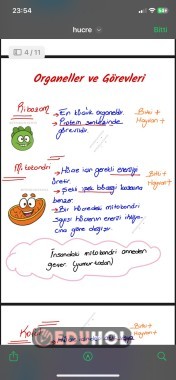 23:54
hucre
Bitti
4 / 11
Organeller ve Görevleri
Ribozom
→ En küçük organeldir.
→ Protein sentezinde
görevlidir.
Bitki +
Hayvan +
Mitokondri
→ Hücre için gerekli enerjiyi
üretir.
→ Şekli ipek böceği kozasına
benzer.
→ Bir hücredeki mitokondri
sayısı hücrenin enerji ihtiya-
cına göre değişir.
Bitki +
Hayvan +
İnsandaki mitokondri anneden
gelir. (yumurtadan)
Bitki +